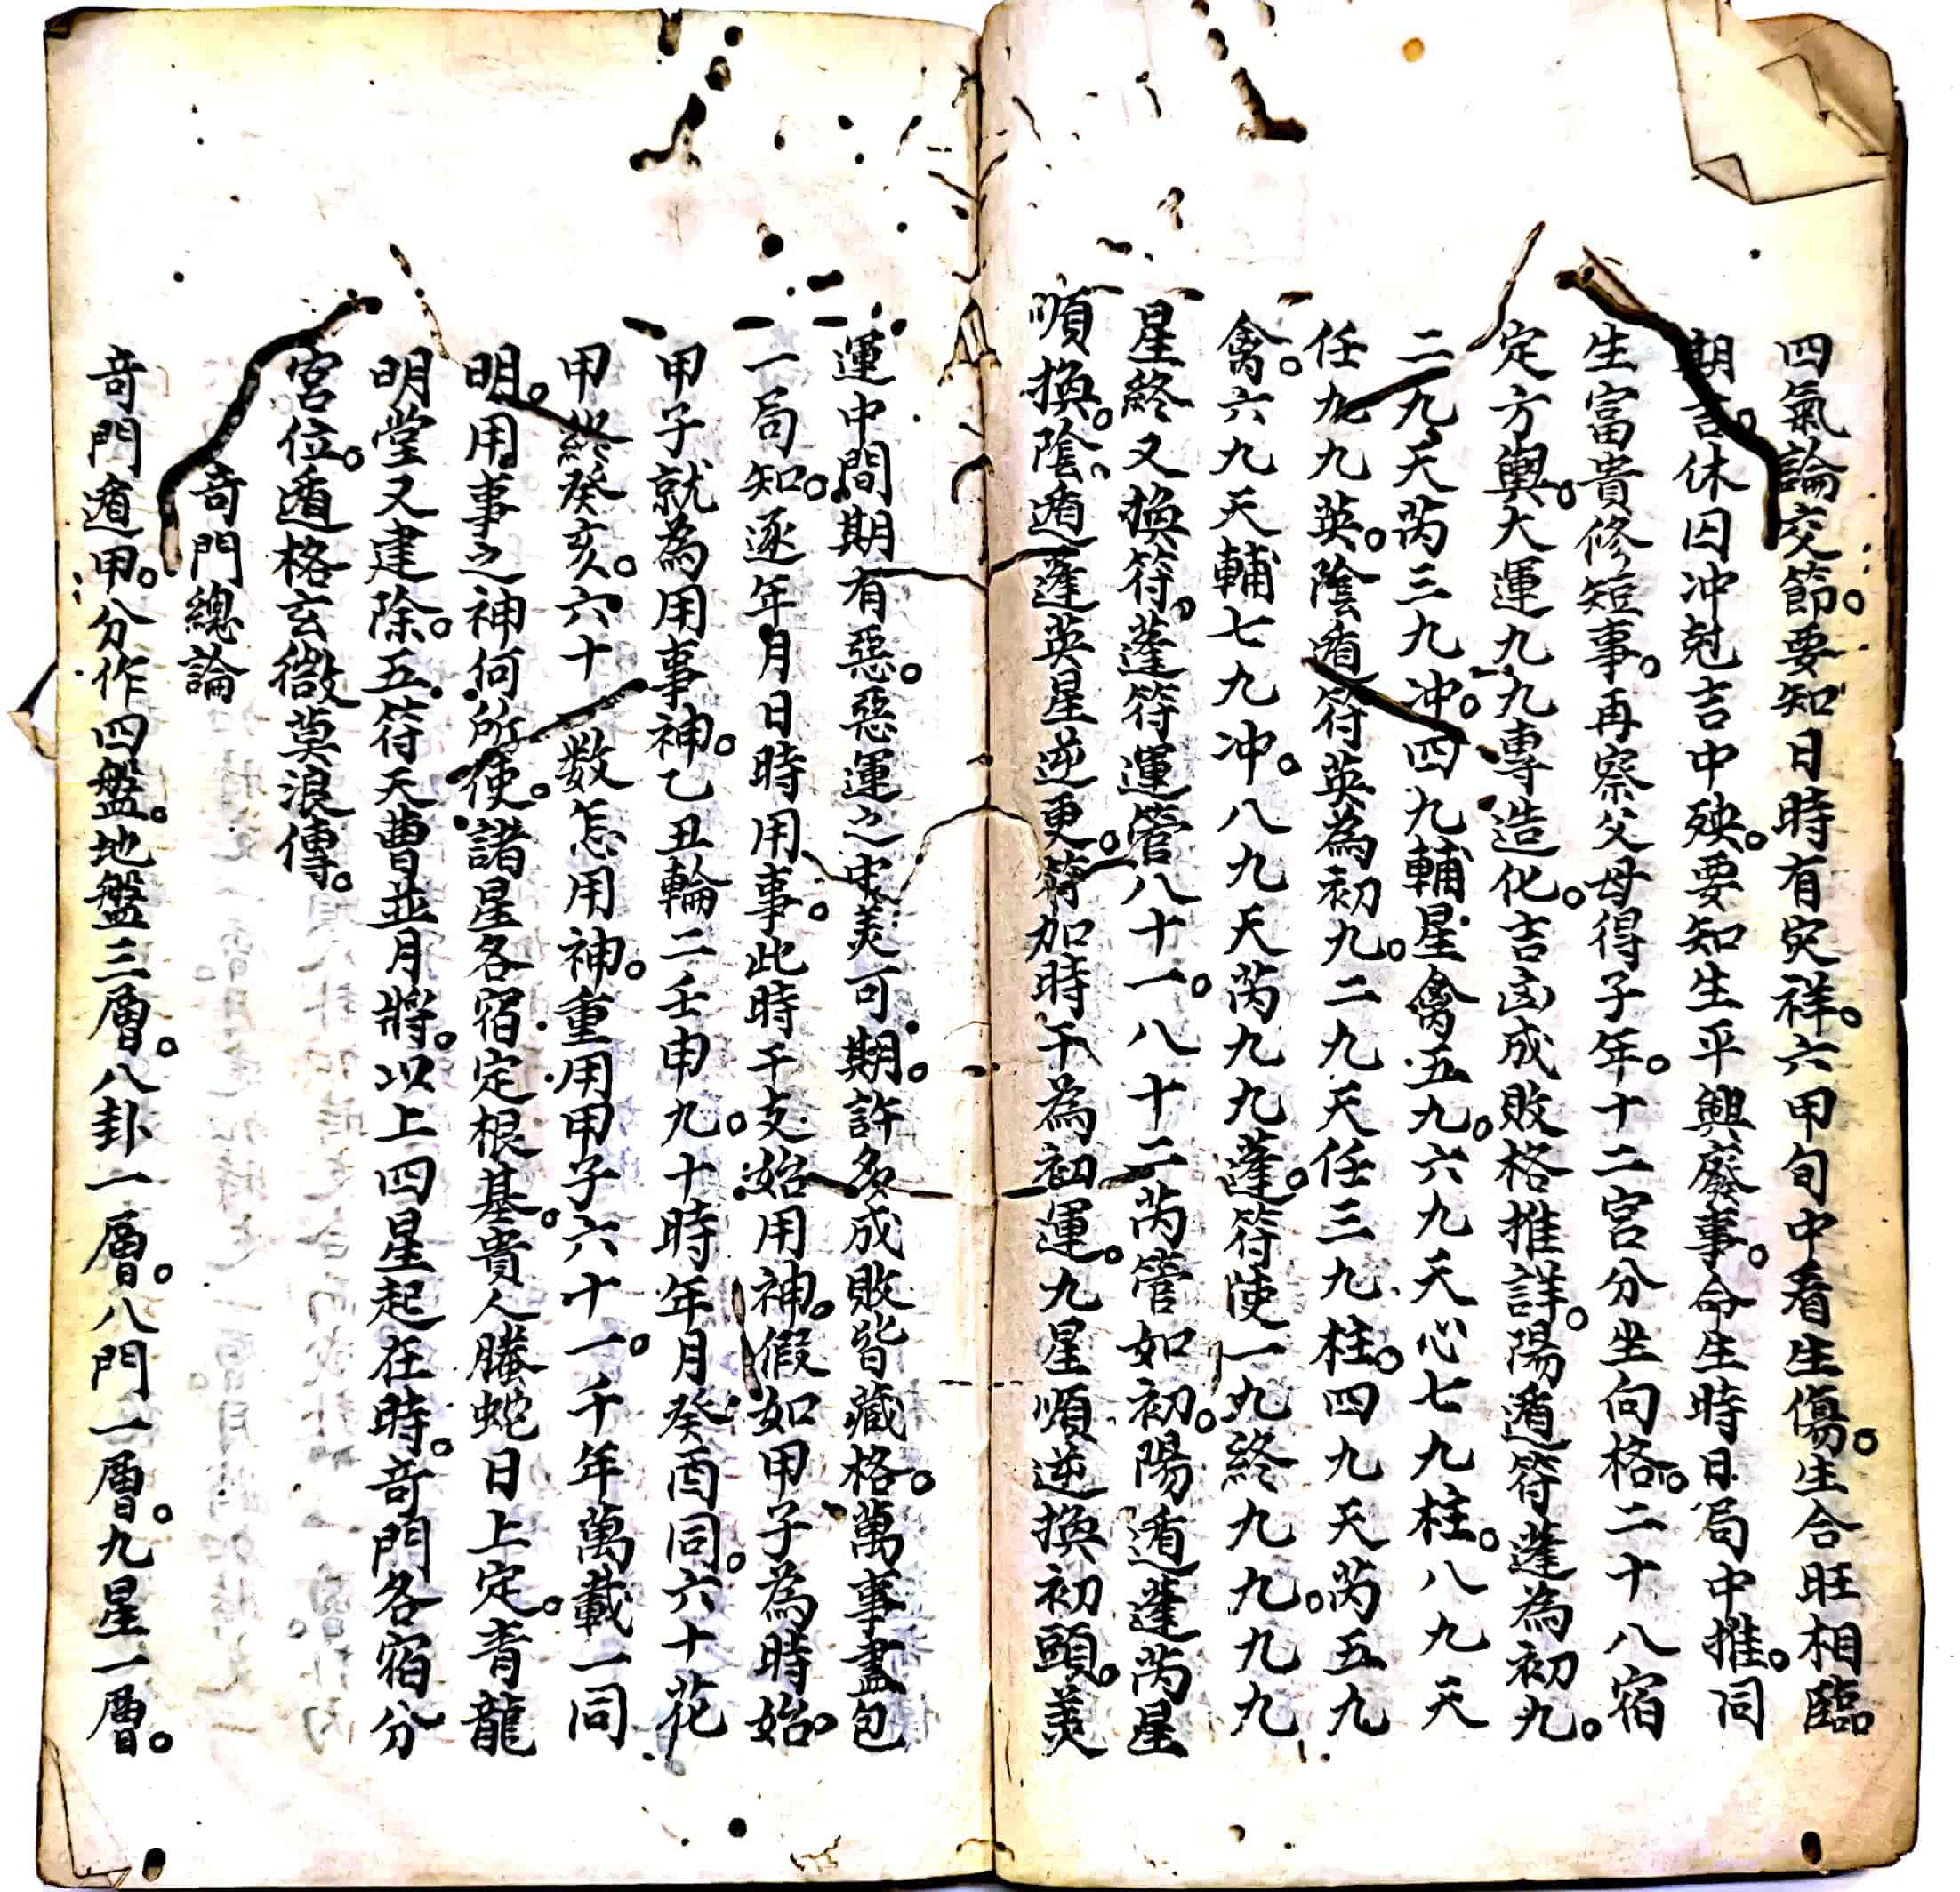 四氣論交節。要知日時有灾祥。六甲旬中看生傷。生合旺相臨
期言。休囚冲尅吉中殃。要知生平興廢事。命生時日局中推。同
生富貴修短事。再察父母得子年。十二宮分坐向格。二十八宿
定方輿。大運九九專造化。吉凶成敗格推詳。陽遁符蓬為初九。
二九天芮三九冲。四九輔星禽五九。六九天心七九柱。八九天
任九九英。陰遁符英為初九。二九天任三九柱。四九天芮五九
禽。六九天輔七九冲。八九天芮九九蓬。符使一九終九九。九九
星終又換符。蓬符運管八十一。八十二芮管如初。陽遁蓬芮星
順換。陰遁蓬英星逆更。符加時干為初運。九星順逆換初頭。美
運中間期有惡。惡運之中美可期。許多成敗皆藏格。萬事盡包
一局知。逐年月日時用事。此時千支始用神。假如甲子為時始。
甲子就為用事神。乙丑輪二壬申九。十時年月癸酉同。六十花
甲終癸亥。六十数怎用神。重用甲子六十一。千年萬載一同
明。用事之神何所使。諸星各宿定根基。貴人螣蛇日上定。青龍
明堂又建除。五符天曹並月將。以上四星起在時。奇門各宿分
宮位。遁格玄微莫浪傳。
奇門總論
奇門遁甲。分作四盤。地盤三層。八卦一層。八門一層。九星一層。